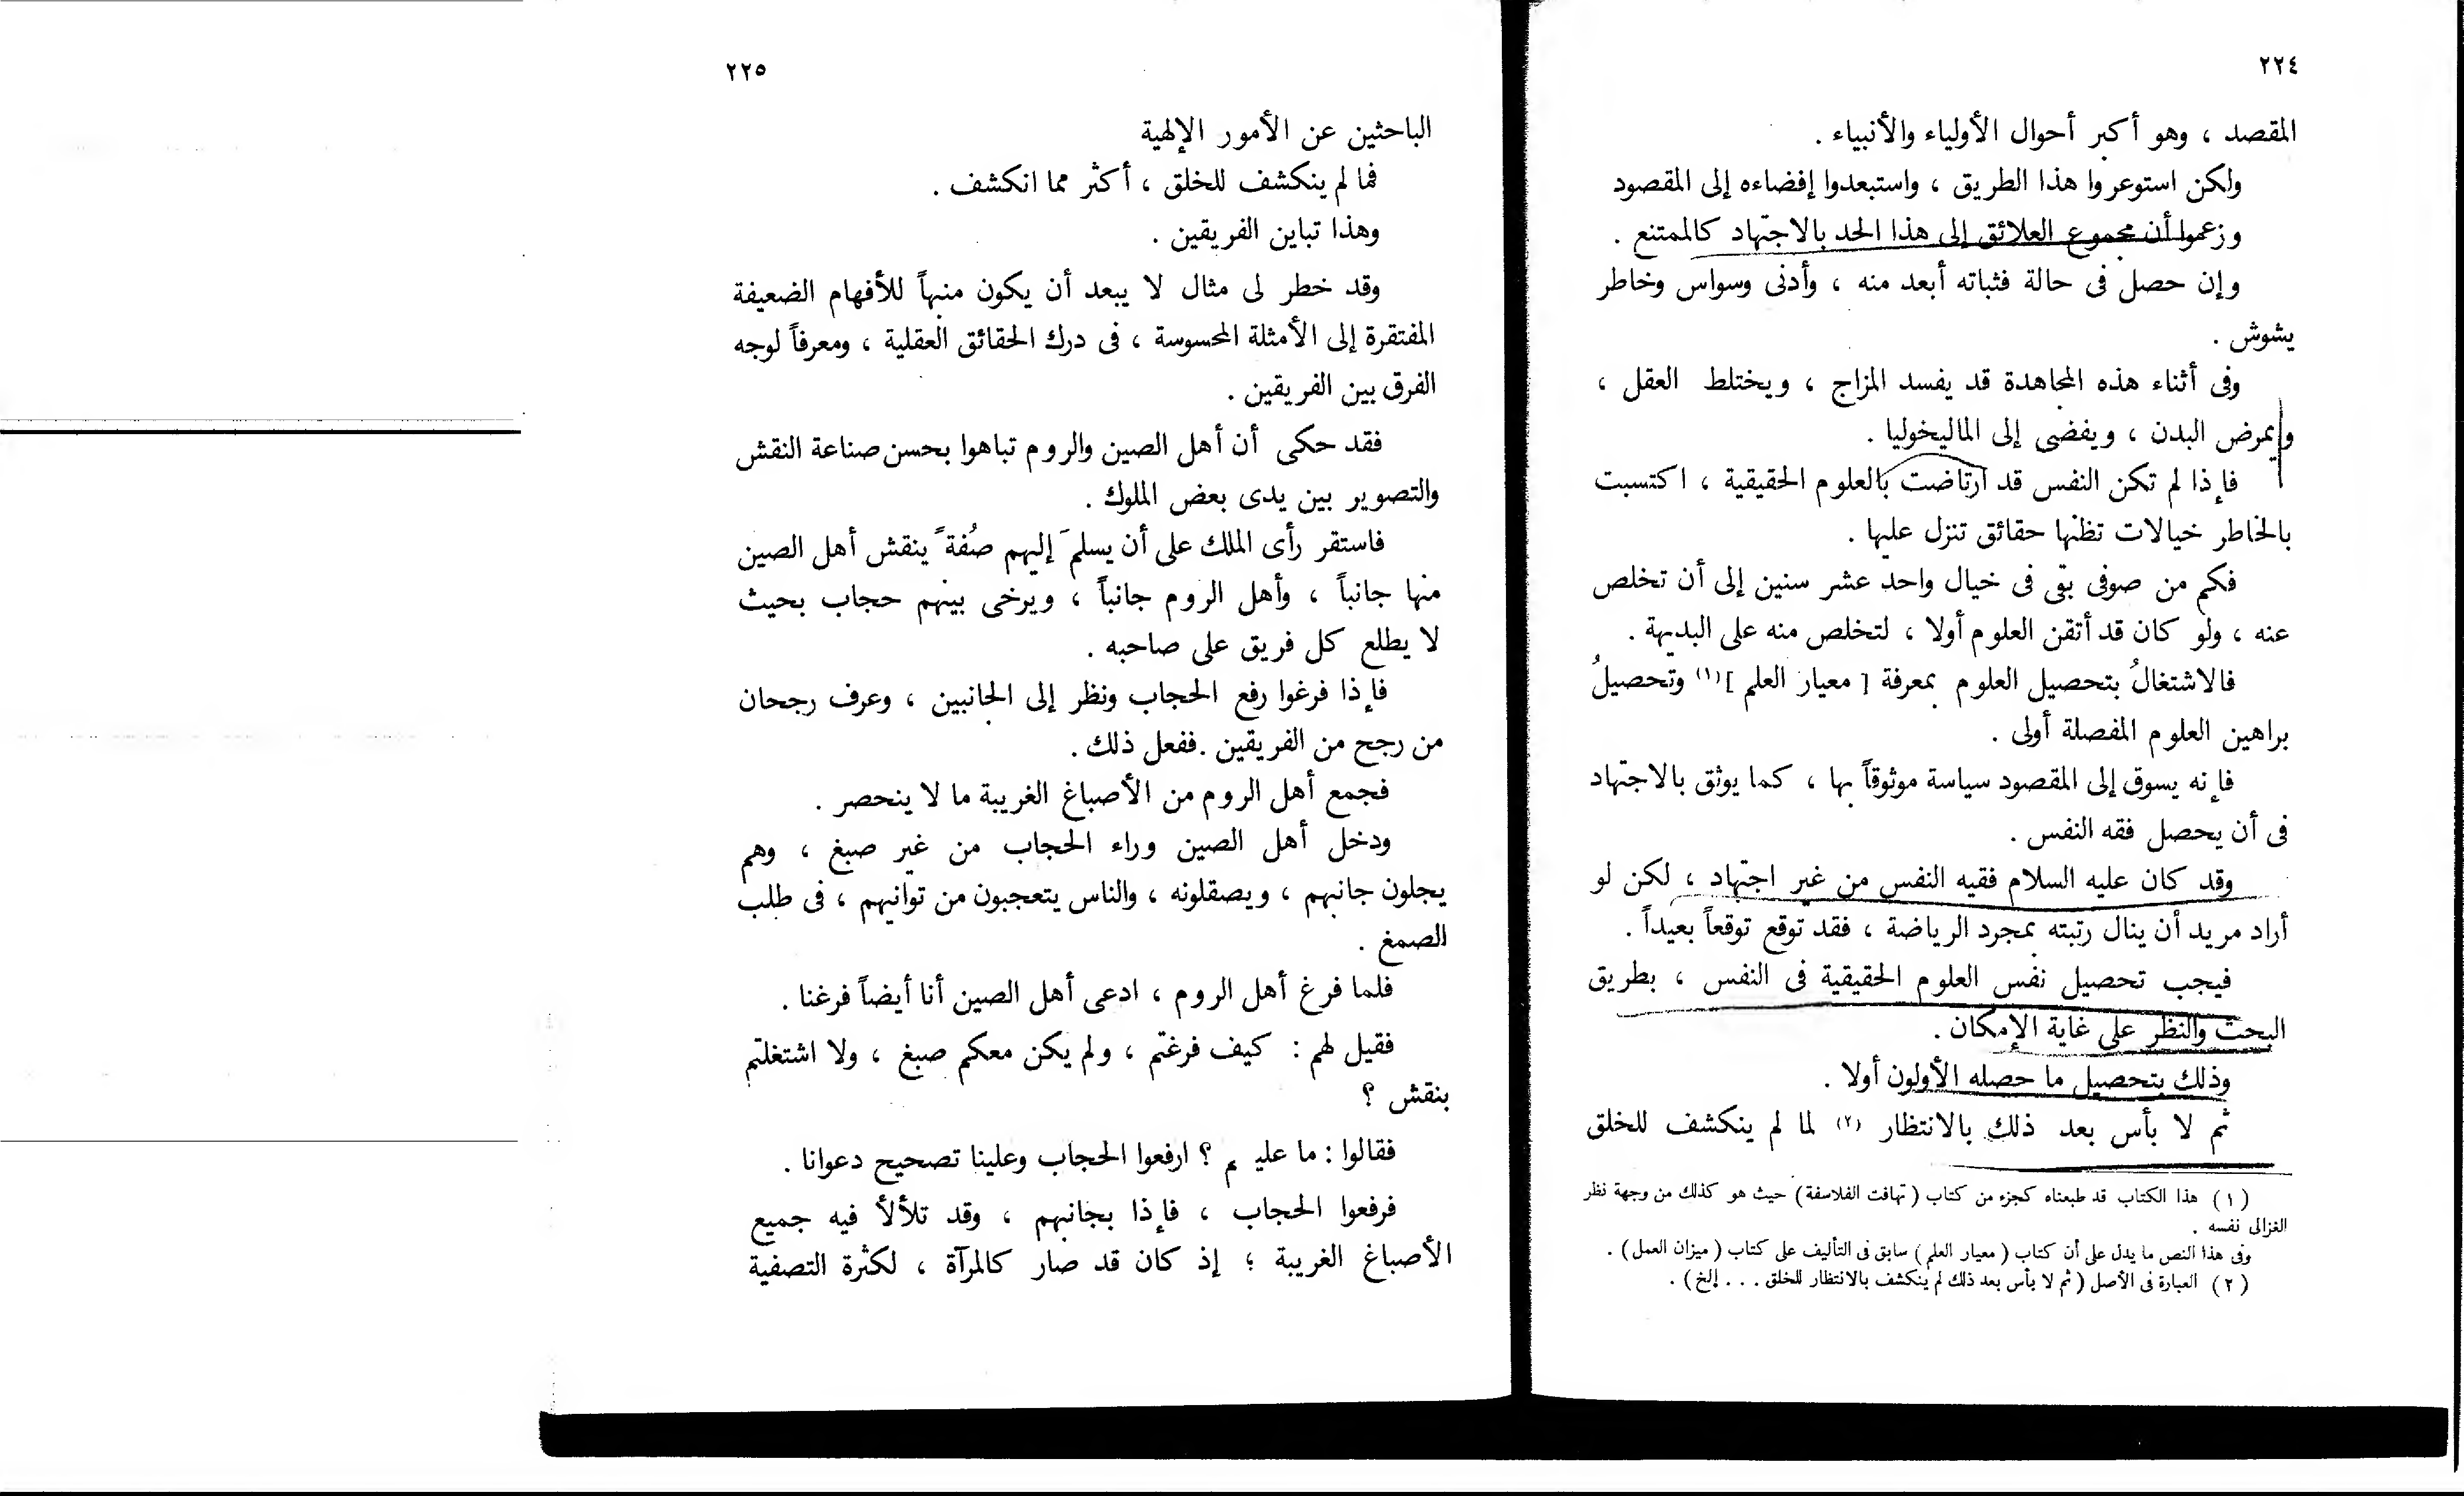 ٢٢٤
المقصد ، وهو أكبر أحوال الأولياء والأنبياء .
ولكن استوعروا هذا الطريق ، واستبعدوا إفضاءه إلى المقصود
وزعموا أن مجموع العلائق إلى هذا الحد بالاجتهاد كالممتنع .
وإن حصل فى حالة فثباته أبعد منه ، وأدنى وسواس وخاطر
يشوش .
وفى أثناء هذه المجاهدة قد يفسد المزاج ، ويختلط العقل ،
ويمرض البدن ، ويفضى إلى الماليخوليا .
فإذا لم تكن النفس قد ارتاضت بالعلوم الحقيقية ، اكتسبت
بالخاطر خيالات تظنها حقائق تنزل عليها .
فكم من صوفى بقى فى خيال واحد عشر سنين إلى أن تخلص
عنه ، ولو كان قد أتقن العلوم أولا ، لتخلص منه على البديهة .
فالاشتغالُ بتحصيل العلوم بمعرفة [ معيار العلم ] (١) وتحصيلُ
براهين العلوم المفصلة أولى .
فإنه يسوق إلى المقصود سياسة موثوقاً بها ، كما يوثق بالاجتهاد
فى أن يحصل فقه النفس .
وقد كان عليه السلام فقيه النفس من غير اجتهاد ، لكن لو
أراد مريد أن ينال رتبته بمجرد الرياضة ، فقد توقع توقعاً بعيداً .
فيجب تحصيل نفس العلوم الحقيقية فى النفس ، بطريق
البحث والنظر على غاية الإمكان .
وذلك بتحصيل ما حصله الأولون أولا .
ثم لا بأس بعد ذلك بالانتظار (٢) لما لم ينكشف للخلق
( ١ ) هذا الكتاب قد طبعناه كجزء من كتاب ( تهافت الفلاسفة ) حيث هو كذلك من وجهة نظر
الغزالى نفسه .
وفى هذا النص ما يدل على أن كتاب ( معيار العلم ) سابق فى التأليف على كتاب ( ميزان العمل ) .
( ٢ ) العبارة فى الأصل ( ثم لا بأس بعد ذلك لم ينكشف بالانتظار للخلق . . . إلخ ) .
٢٢٥
الباحثين عن الأمور الإلهية
فما لم ينكشف للخلق ، أكثر مما انكشف .
وهذا تباين الفريقين .
وقد خطر لى مثال لا يبعد أن يكون منبهاً للأفهام الضعيفة
المفتقرة إلى الأمثلة المحسوسة ، فى درك الحقائق العقلية ، ومعرفاً لوجه
الفرق بين الفريقين .
فقد حكى أن أهل الصين والروم تباهوا بحسن صناعة النقش
والتصوير بين يدى بعض الملوك .
فاستقر رأى الملك على أن يسلمَ إليهم صُفةً ينقش أهل الصين
منها جانباً ، وأهل الروم جانباً ، ويرخى بينهم حجاب بحيث
لا يطلع كل فريق على صاحبه .
فإذا فرغوا رفع الحجاب ونظر إلى الجانبين ، وعرف رجحان
من رجح من الفريقين . ففعل ذلك .
فجمع أهل الروم من الأصباغ الغريبة ما لا ينحصر .
ودخل أهل الصين وراء الحجاب من غير صبغ ، وهم
يجلون جانبهم ، ويصقلونه ، والناس يتعجبون من توانيهم ، فى طلب
الصمغ .
فلما فرغ أهل الروم ، ادعى أهل الصين أنا أيضاً فرغنا .
فقيل لهم : كيف فرغتم ، ولم يكن معكم صبغ ، ولا اشتغلتم
بنقش ؟
فقالوا : ما عليكم ؟ ارفعوا الحجاب وعلينا تصحيح دعوانا .
فرفعوا الحجاب ، فإذا بجانبهم ، وقد تلألأ فيه جميع
الأصباغ الغريبة ؛ إذ كان قد صار كالمرآة ، لكثرة التصفية